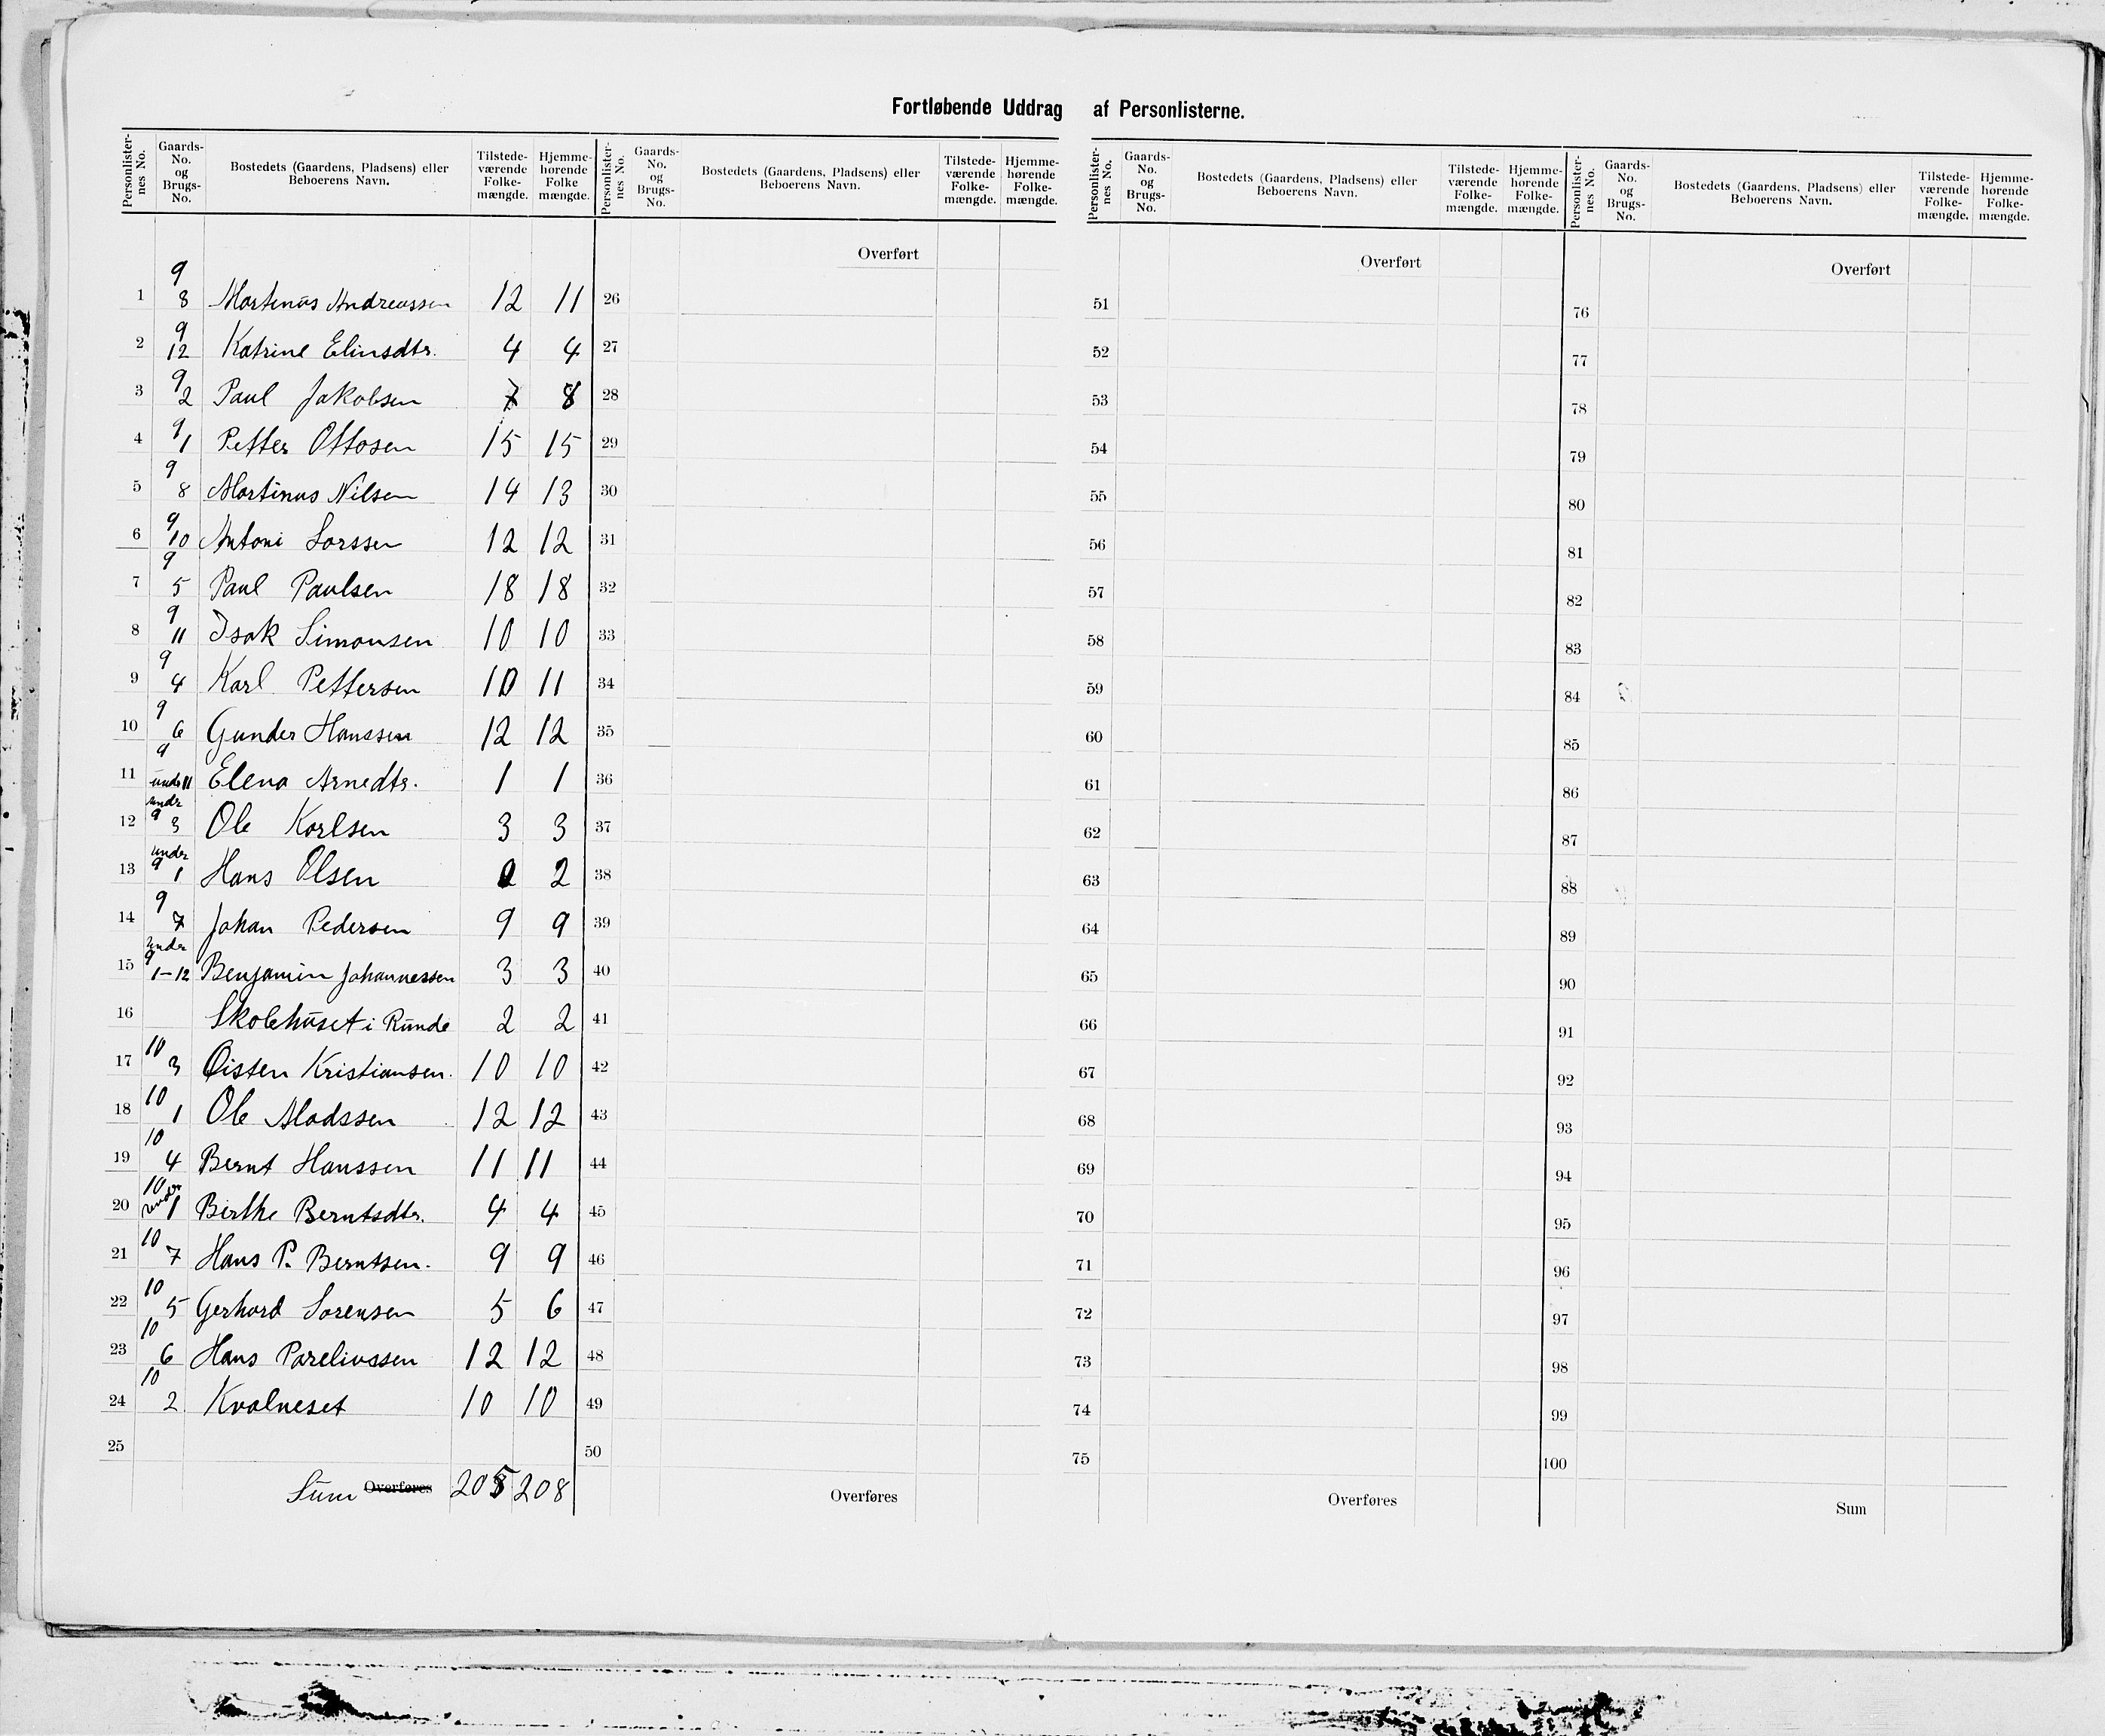 Fortløbende Uddrag af Personlisterne.
Personlisternes No. Gaards-No. og Brugs-No. Bostedets (Gaardens, Pladsens) eller Beboerens Navn. Tilstedeværende Folkemængde. Hjemmehørende Folkemængde.
Personlisternes No. Gaards-No. og Brugs-No. Bostedets (Gaardens, Pladsens) eller Beboerens Navn. Tilstedeværende Folkemængde. Hjemmehørende Folkemængde.
Personlisternes No. Gaards-No. og Brugs-No. Bostedets (Gaardens, Pladsens) eller Beboerens Navn. Tilstedeværende Folkemængde. Hjemmehørende Folkemængde.
Personlisternes No. Gaards-No. og Brugs-No. Bostedets (Gaardens, Pladsens) eller Beboerens Navn. Tilstedeværende Folkemængde. Hjemmehørende Folkemængde.
1 9 8 Martinus Andreassen 12 11
2 9 12 Katrine Elinsdtr. 4 4
3 9 2 Paul Jakobsen 7 8
4 9 1 Petter Ottosen 15 15
5 9 8 Martinus Nilsen 14 13
6 9 10 Antoni Larssen 12 12
7 9 5 Paul Paulsen 18 18
8 9 11 Isak Simonsen 10 10
9 9 4 Karl Pettersen 10 11
10 9 6 Gunder Hanssen 12 12
11 9 under 11 Elena Arnedtr. 1 1
12 under 9 3 Ole Karlsen 3 3
13 under 9 1 Hans Olsen 2
14 9 7 Johan Pedersen 9 9
15 under 9 1-12 Benjamin Johannessen 3 3
16 Skolehuset i Runde 2 2
17 10 3 Øisten Kristiansen. 10 10
18 10 1 Ole Madssen 12 12
19 10 4 Bernt Hanssen 11 11
20 10 under 1 Birthe Berntsdtr. 4 4
21 10 7 Hans P. Berntsen. 9 9
22 10 5 Gerhard Sorensen 5 6
23 10 6 Hans Pareliussen 12 12
24 10 2 Kvalneset 10 10
25
Sum Overføres 205 208
Overført
26
27
28
29
30
31
32
33
34
35
36
37
38
39
40
41
42
43
44
45
46
47
48
49
50
Overføres
Overført
51
52
53
54
55
56
57
58
59
60
61
62
63
64
65
66
67
68
69
70
71
72
73
74
75
Overføres
Overført
76
77
78
79
80
81
82
83
84
85
86
87
88
89
90
91
92
93
94
95
96
97
98
99
100
Sum